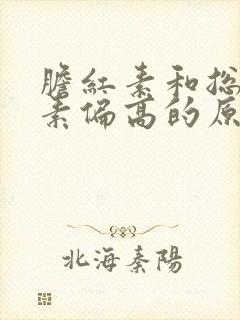 膽紅素和總
素偏高的原
北海秦陽